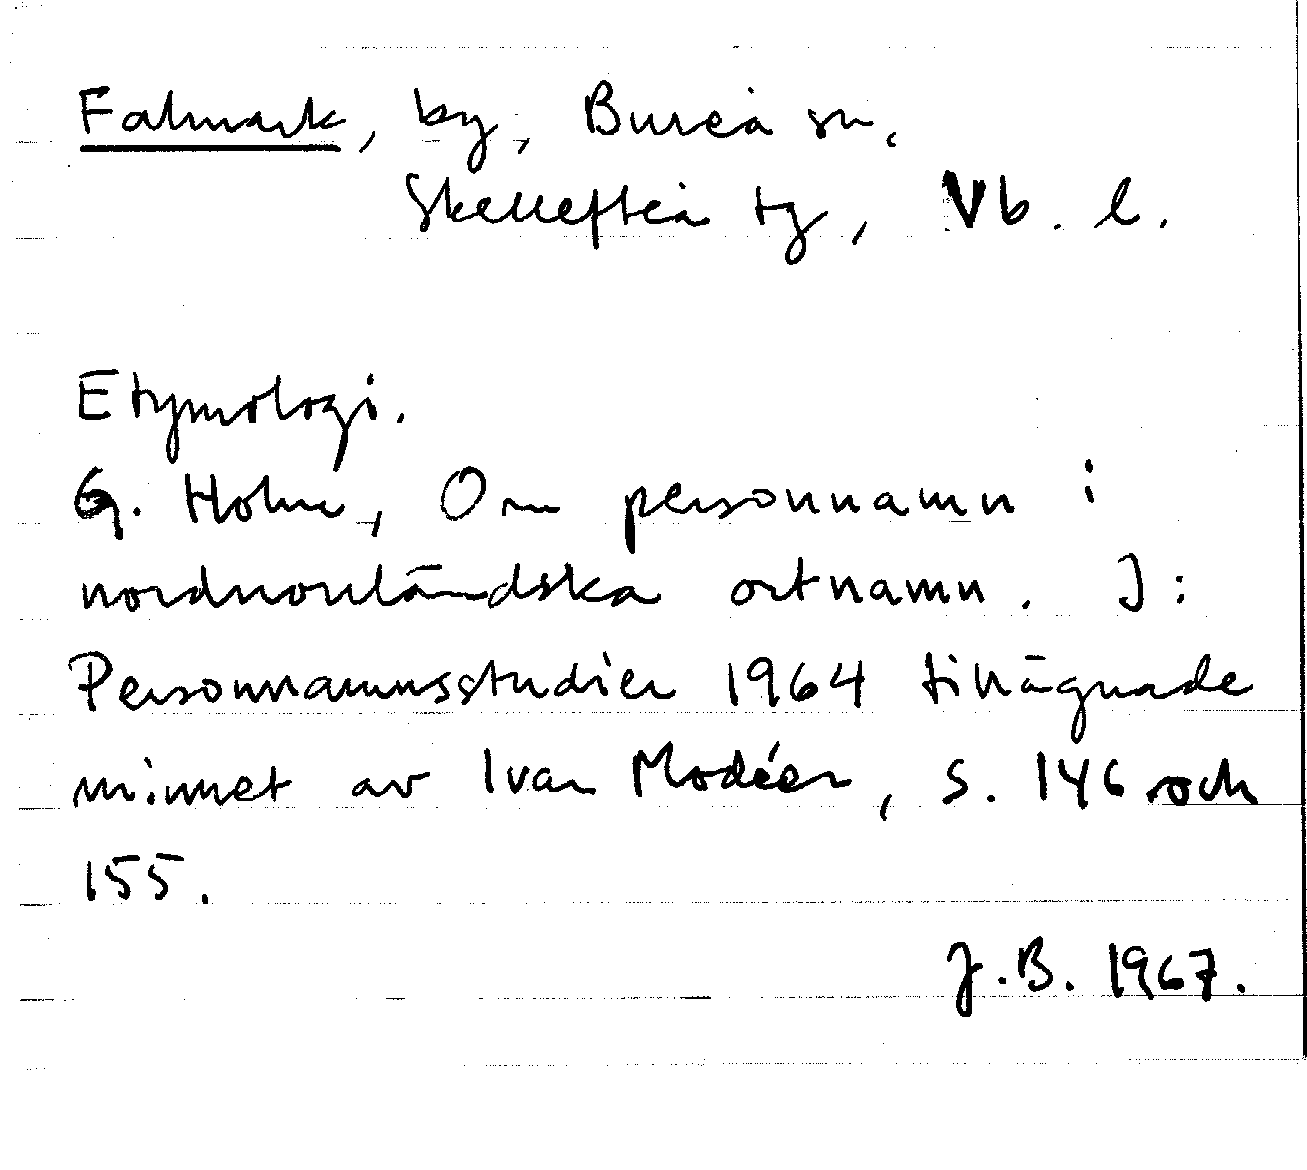 Falmark, by, Bureå sn,
Skellefteå tg, Vb. l.
Etymologi.
G. Holm, Om personnamn i
nordnorrländska ortnamn. I:
Personnamnsstudier 1964 tillägnade
minnet av Ivar Modéer, s. 146 och
155.
J.B. 1967.